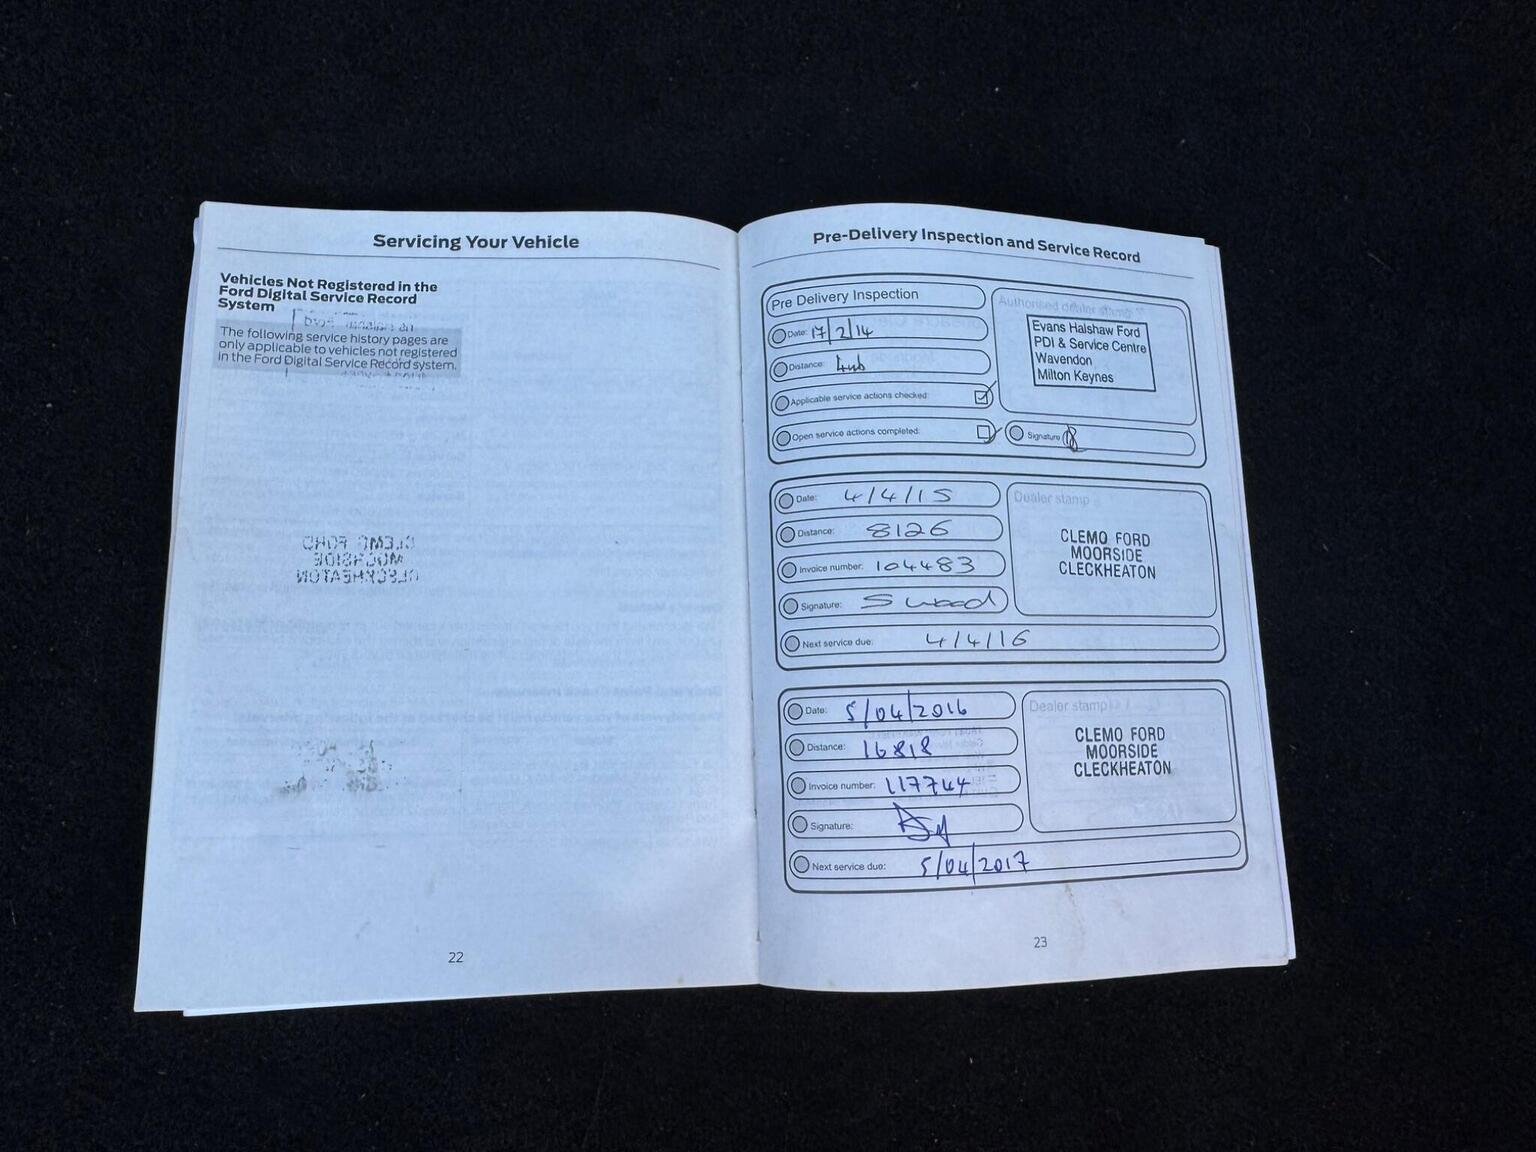 Servicing Your Vehicle
Vehicles Not Registered in the
Ford Digital Service Record
System
The following service history pages are
only applicable to vehicles not registered
in the Ford Digital Service Record system.
22
Pre-Delivery Inspection and Service Record
Pre Delivery Inspection
Date: 17/2/14
Distance:
Applicable service actions checked:
Open service actions completed:
Authorised dealer stamp
Evans Halshaw Ford
PDI & Service Centre
Wavendon
Milton Keynes
Signature
Date: 4/4/15
Distance: 8126
Invoice number: 104483
Signature: S Wood
Next service due: 4/4/16
Dealer stamp
CLEMO FORD
MOORSIDE
CLECKHEATON
Date: 5/04/2016
Distance: 16818
Invoice number: 117744
Signature:
Next service due: 5/04/2017
Dealer stamp
CLEMO FORD
MOORSIDE
CLECKHEATON
23